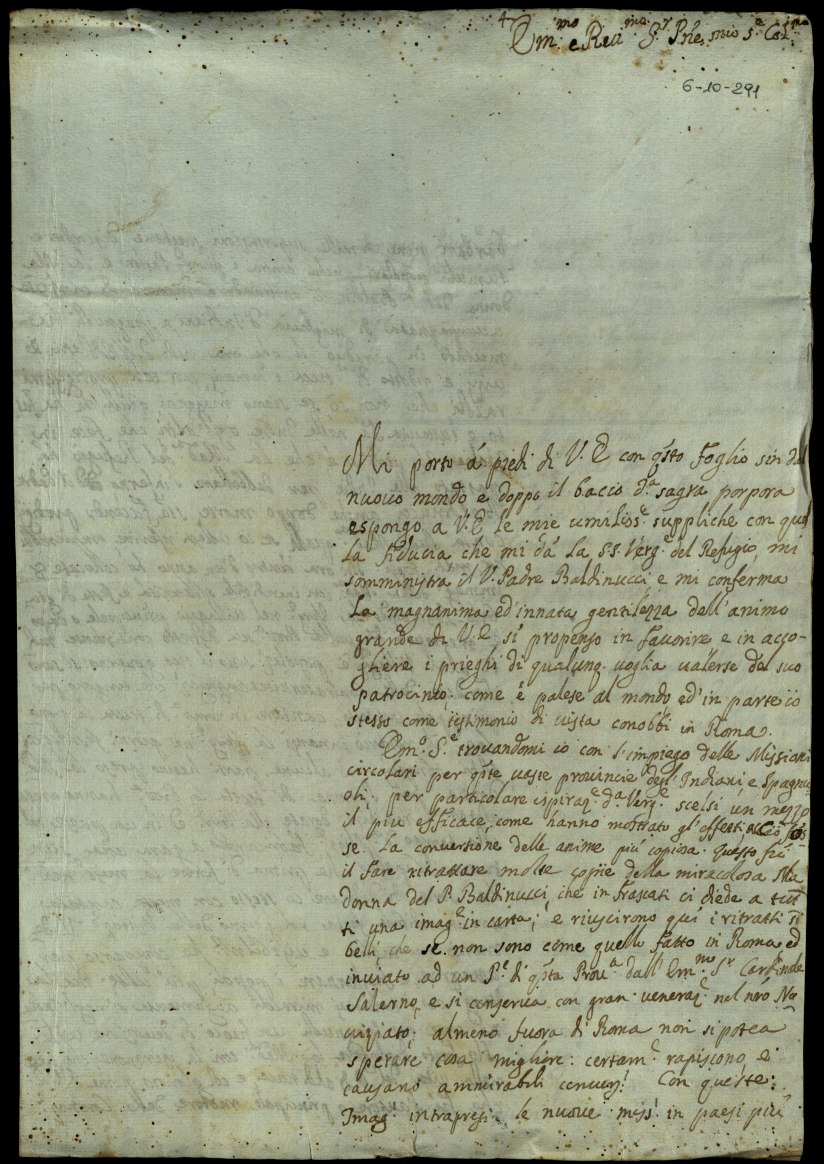 Em.mo e Rev.mo S.r P.ne mio s.a Col.mo
6-10-291
Mi porto á piedi di V.E con q̃sto foglio sin dal
nuovo mondo e doppo il baccio d.a sagra porpora
espongo a V.E le mie umiliss.e suppliche con quel
la fiducia che mi dà la SS. Verg.e del Refugio, mi
somministra il V. Padre Baldinucci e mi conferma
la magnanima ed'innata gentilezza dell'animo
grande di V.E sì propenso in favorire e in acco-
gliere i prieghi di qualunq. voglia valerse del suo
patrocinio; come è palese al mondo, ed'in parte io
stesso come testimonio di vista conobbi in Roma.
Em.o S.e trovandomi io con l'impiego delle Missioni
circolari per q̃ste vaste provincie degl'Indiani, e Spagnu-
oli; per particolare ispiraz.e d.a Verg.e scelsi un mezzo
il più efficace, come hanno mostrato gl'effetti, acciò fos
se la conversione delle anime più copiosa. Questo fù
il fare ritrattare molte copie della miracolosa Ma
donna del P. Baldinucci, che in Frascati ci diede a tut
ti una imag.e in carta; e riuscirono quì i ritratti sì
belli, che se non sono come quello fatto in Roma ed
inviato ad un P.e di q̃sta Prov.a dall'Em.mo S.r Cardinale
Salerno, e si conserva con gran veneraz.e nel nr̃o No
viziato; almeno fuora di Roma non si potea
sperare cosa migliore: certam.e rapiscono, e
causano ammirabili convers.i Con queste
Imag. intrapresi le nuove miss.i in paesi più